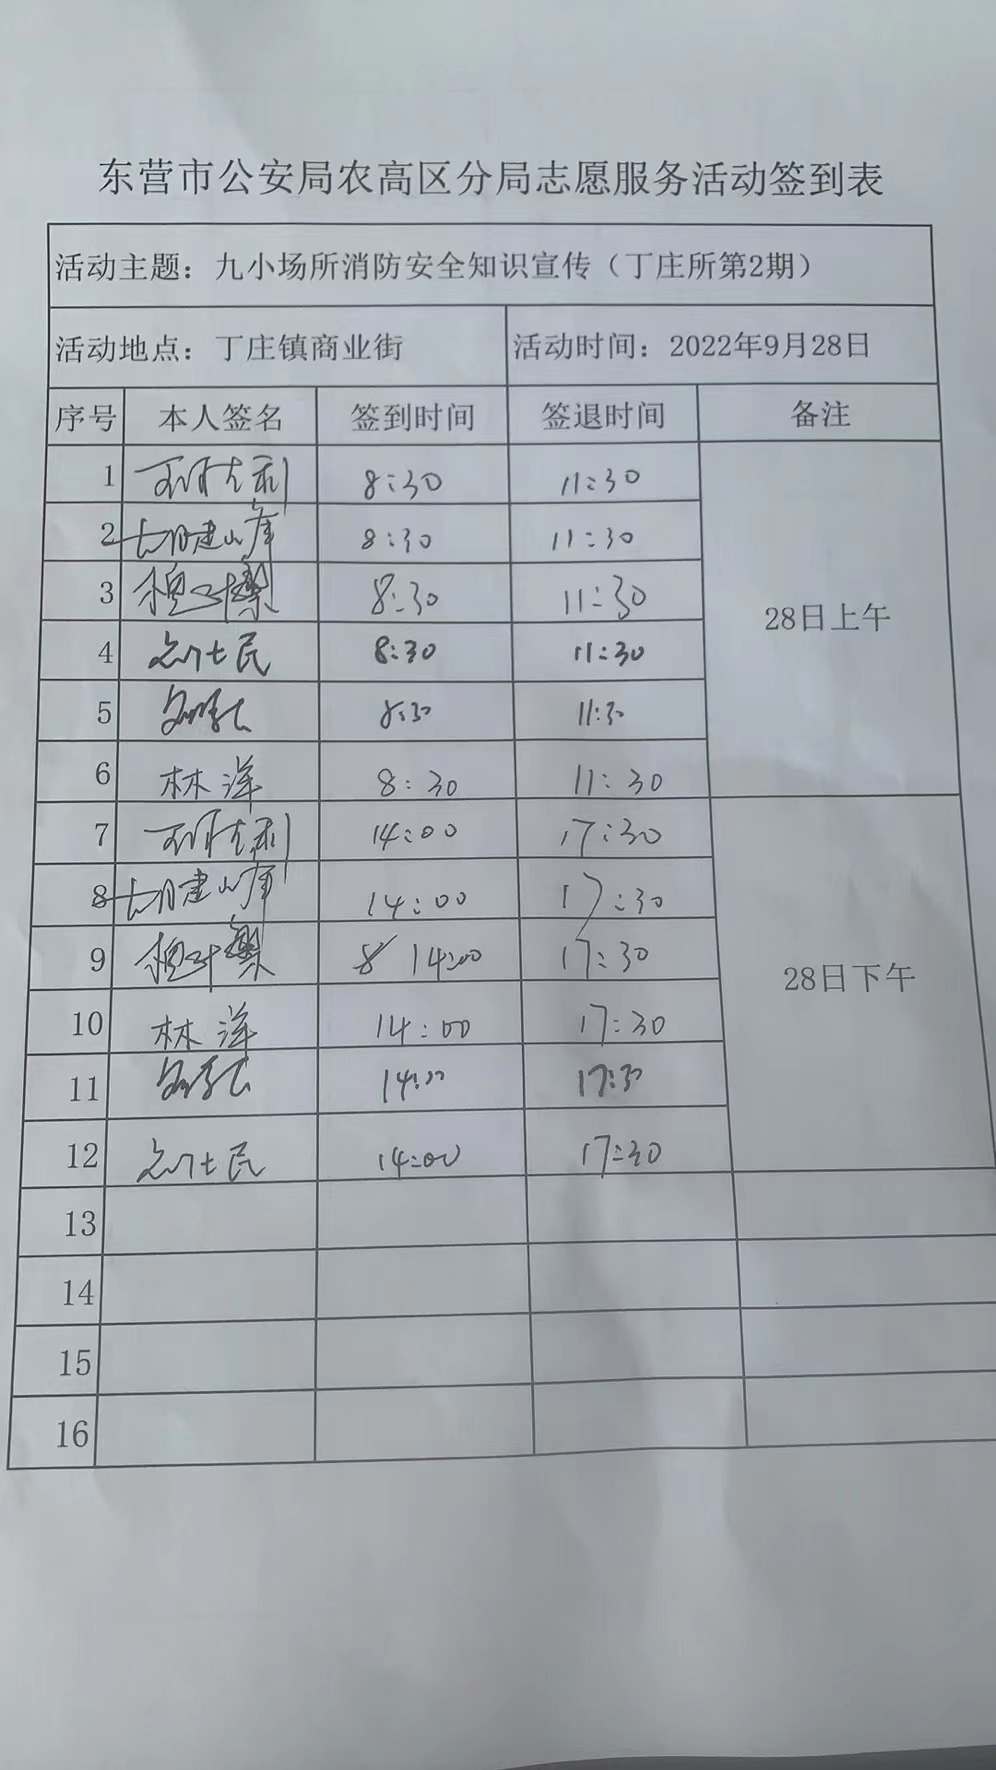 东营市公安局农高区分局志愿服务活动签到表
活动主题：九小场所消防安全知识宣传（丁庄所第2期）
活动地点：丁庄镇商业街 活动时间：2022年9月28日
序号 本人签名 签到时间 签退时间 备注
1 8:30 11:30
2 8:30 11:30
3 8:30 11:30
28日上午
4 8:30 11:30
5 8:30 11:30
6 林洋 8:30 11:30
7 14:00 17:30
8 14:00 17:30
9 14:00 17:30
28日下午
10 林洋 14:00 17:30
11 14:00 17:30
12 14:00 17:30
13
14
15
16